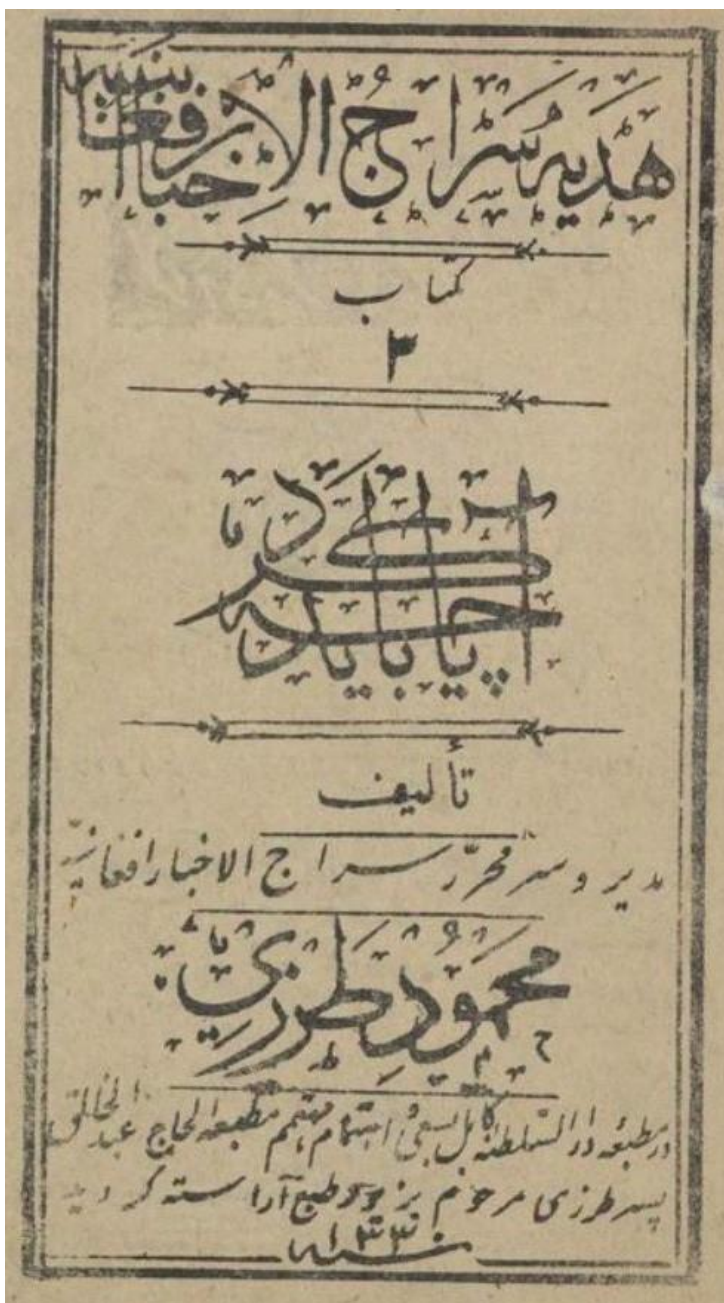 هديه سراج الاخبار افغانیه
کتاب
۳
آیا چه باید کرد
تأليف
مدیر و سر محرّر سراج الاخبار افغانیّه
محمود طرزی
در مطبعهٔ دار السّلطنه کابل بسعی و اهتمام مهتمم مطبعه الحاج عبد الخالق
پسر طرزی مرحوم بزیور طبع آراسته گردید
سنه ۱۳۳۰